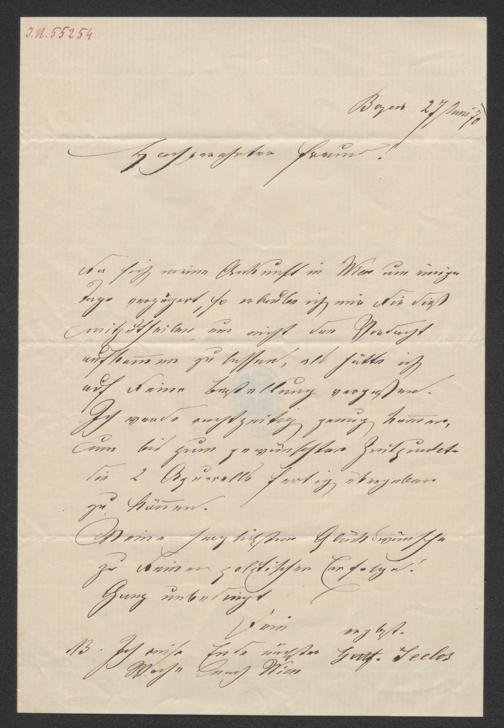 I.N. 55254
Bozen 27 Juni 70
Hochverehrter Freund!
Da sich meine Ankunft in Wien um einige
Tage verzögert, so erlaube ich mir Dir dieß
mitzutheilen, um nicht den Verdacht
aufkommen zu lassen, als hätte ich
auf Deine Bestellung vergessen.
Ich werde rechtzeitig genug kommen,
um bis zum gewünschten Zeitpunkte
die 2 Aquarelle fertig übergeben
zu können.
Meine herzlichsten Glückswünsche
zu Deinen politischen Erfolge!
Ganz unbedingt
Dein
ergbst.
NB. Ich reise Ende nächster Gottf. Seelos
Woche nach Wien